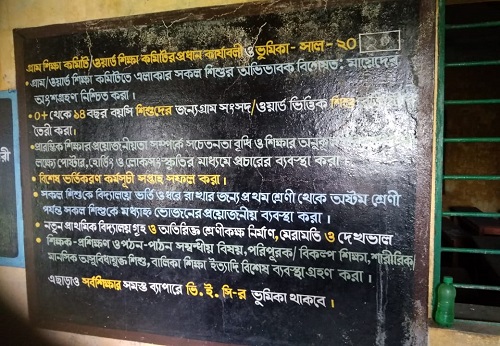 গ্রাম শিক্ষা কমিটি/ওয়ার্ড শিক্ষা কমিটির প্রধান কার্যাবলী ও ভূমিকা - সাল - ২০
• গ্রাম/ওয়ার্ড শিক্ষা কমিটিতে এলাকার সকল শিশুর অভিভাবক বিশেষত: মায়েদের
অংশগ্রহণ নিশ্চিত করা।
• ০+ থেকে ১৪ বছর বয়সি শিশুদের জন্য গ্রাম সংসদ/ওয়ার্ড ভিত্তিক
তৈরী করা।
• প্রারম্ভিক শিক্ষার প্রয়োজনীয়তা সম্পর্কে সচেতনতা বৃধি ও শিক্ষার
লক্ষ্যে পোস্টার, হোর্ডিং ও লোকসংস্কৃতির মাধ্যমে প্রচারের ব্যবস্থা করা।
• বিশেষ ভর্তিকরণ কর্মসূচী সপ্তাহ সফল করা।
• সকল শিশুকে বিদ্যালয়ে ভর্তি ও ধরে রাখার জন্য প্রথম শ্রেণী থেকে অষ্টম শ্রেণী
পর্যন্ত সকল শিশুকে মধ্যাহ্ন ভোজনের প্রয়োজনীয় ব্যবস্থা করা।
• নতুন প্রাথমিক বিদ্যালয় গৃহ ও অতিরিক্ত শ্রেণীকক্ষ নির্মাণ, মেরামতি ও দেখভাল
• শিক্ষক - প্রশিক্ষণ ও পঠন-পাঠন সম্বন্ধীয় বিষয়, পরিপূরক/বিকল্প শিক্ষা, শারীরিক/
মানসিক অসুবিধাযুক্ত শিশু, বালিকা শিক্ষা ইত্যাদি বিশেষ ব্যবস্থা গ্রহণ করা।
এছাড়াও সর্বশিক্ষার সমস্ত ব্যাপারে ভি.ই.সি-র ভূমিকা থাকবে।
রী